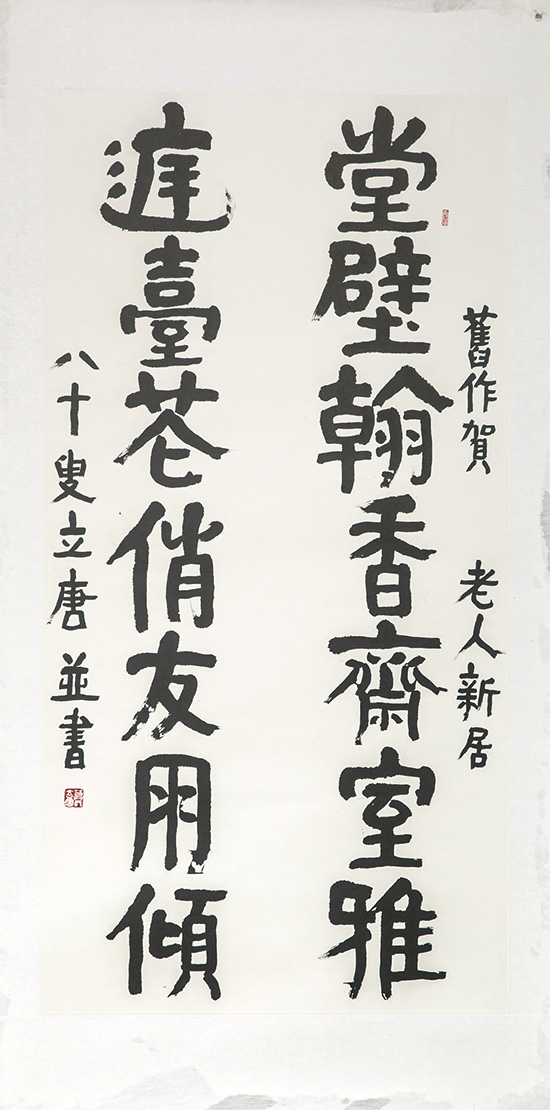 舊作賀 老人新居
堂壁翰香齋室雅
庭臺芲俏友朋傾
八十叟立唐並書